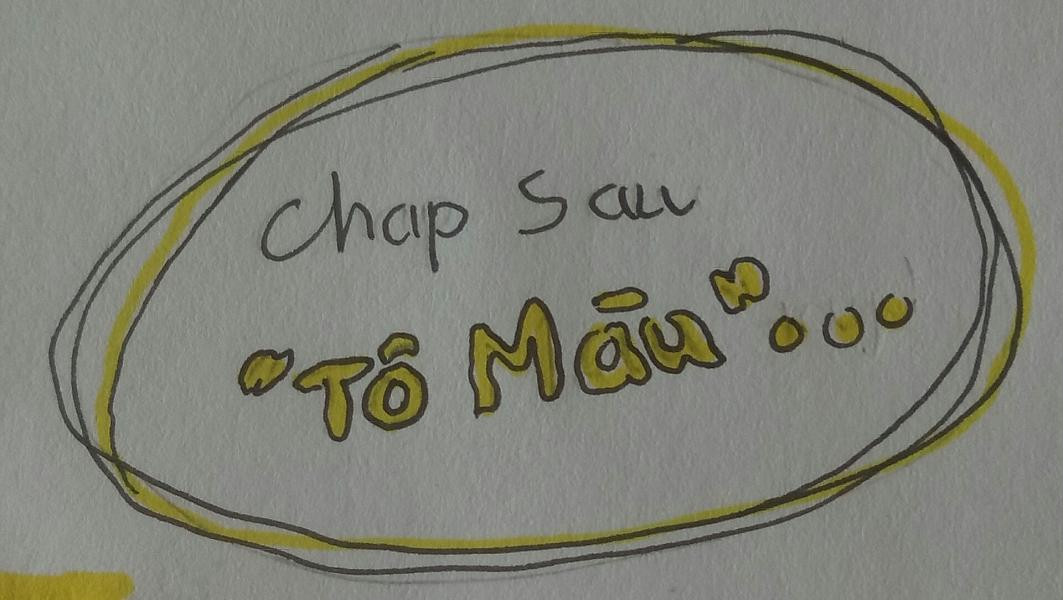 Chap Sau
"Tô Màu"...